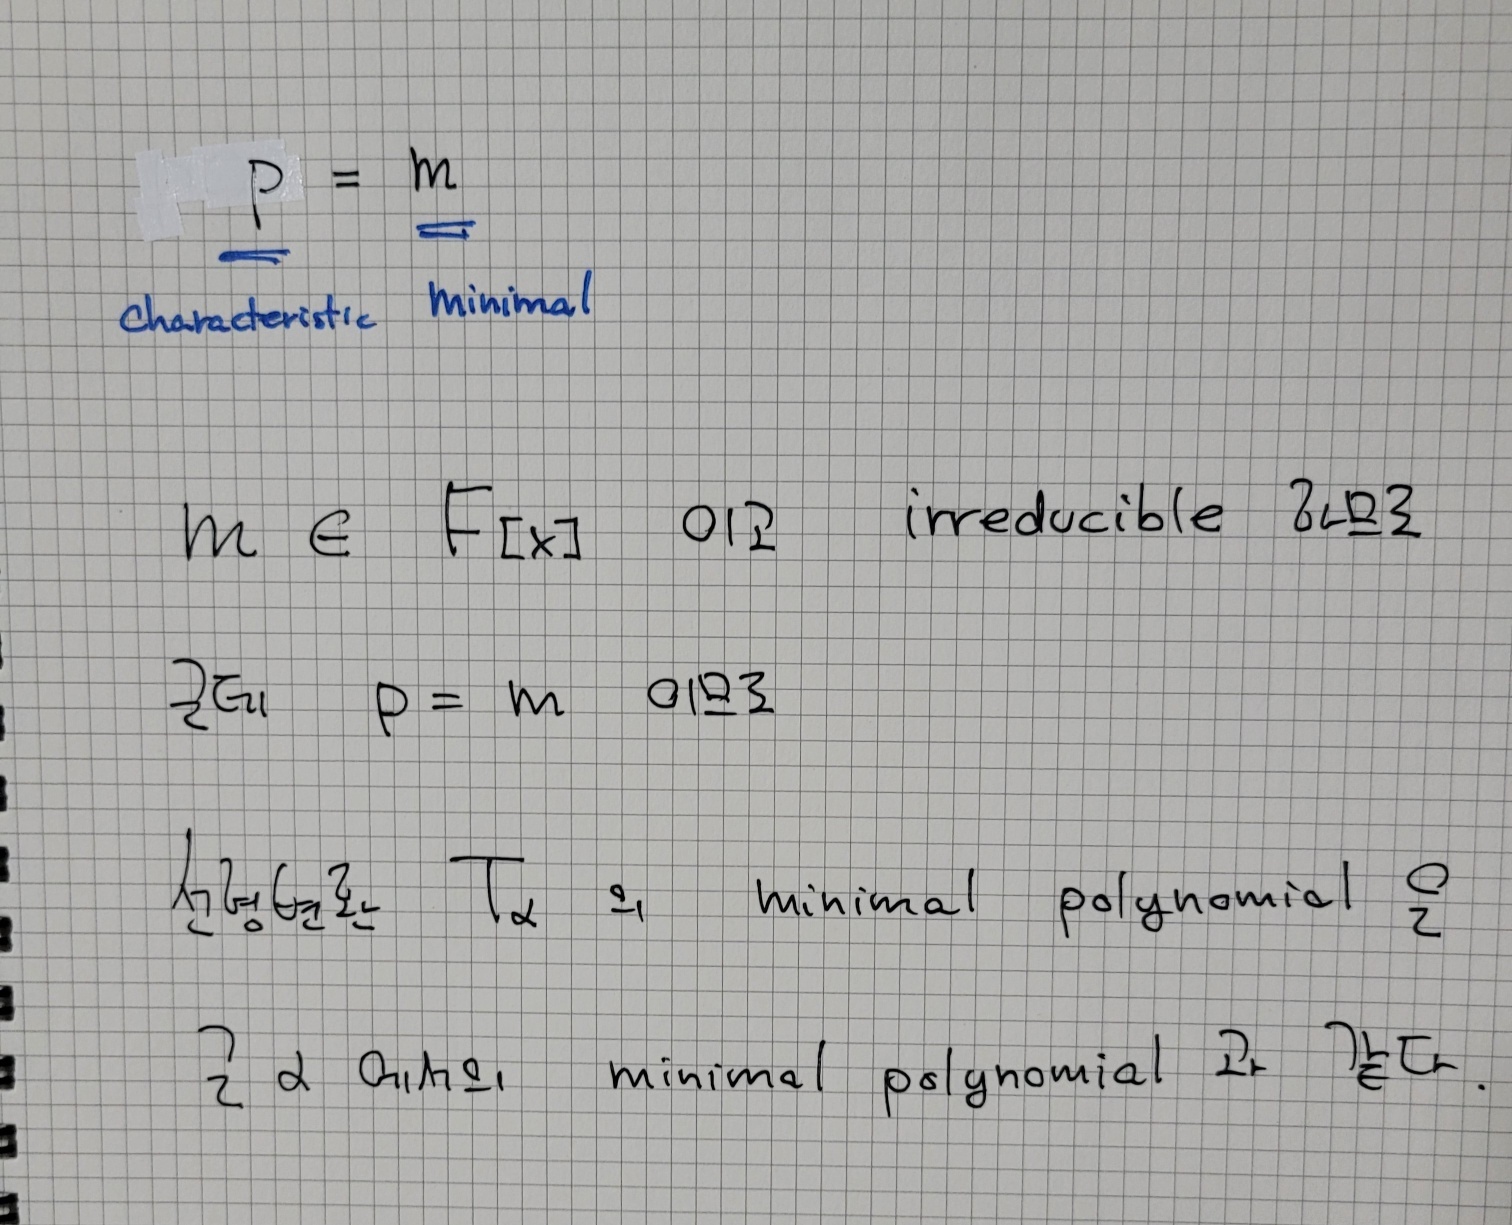 p = m
characteristic minimal
m ∈ F[x] 이고 irreducible 하므로
근데 p = m 이므로
선형변환 Tα 의 minimal polynomial 은
근 α 에서의 minimal polynomial 과 같다.